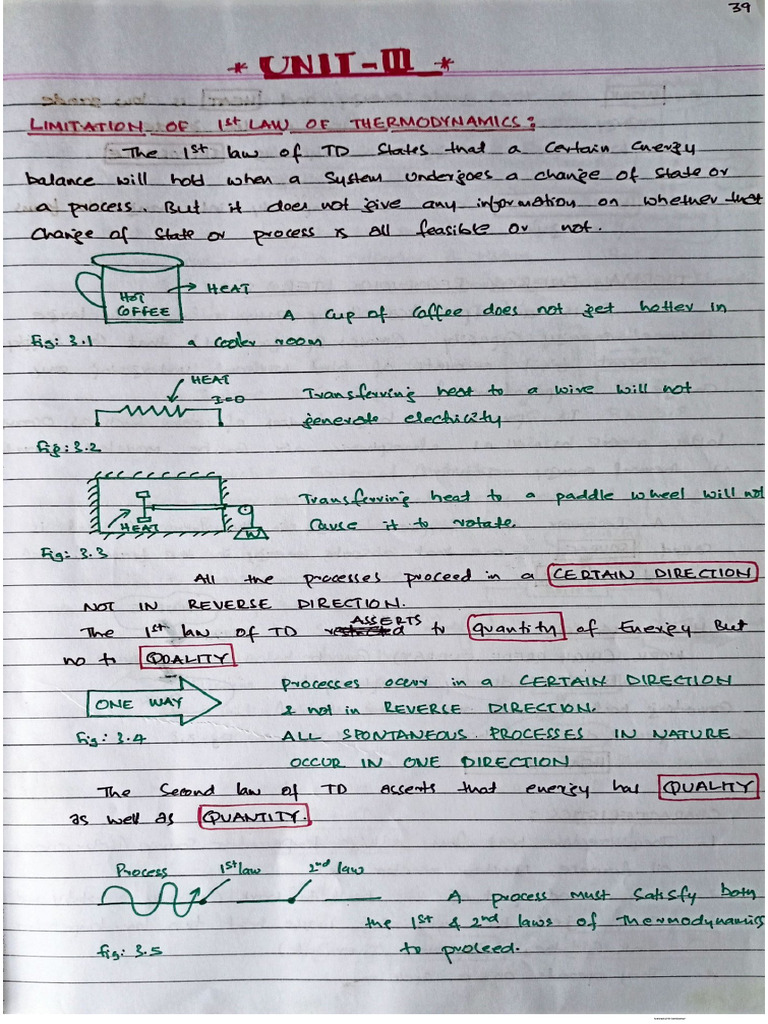 39
* UNIT-III *
LIMITATION OF 1st LAW OF THERMODYNAMICS:
The 1st law of TD States that a Certain Energy
balance will hold when a System undergoes a change of State or
a process. But it does not give any information on whether that
Change of State or process is all feasible or not.
HOT
COFFEE
HEAT
A Cup of Coffee does not get hotter in
Fig: 3.1
a Cooler room
HEAT
I=0
Transferring heat to a wire will not
generate electricity
Fig: 3.2
HEAT
W
Transferring heat to a paddle wheel will not
Cause it to rotate.
Fig: 3.3
All the processes proceed in a CERTAIN DIRECTION
NOT IN REVERSE DIRECTION.
ASSERTS
The 1st law of TD to Quantity of Energy But
no to QUALITY
ONE WAY
Processes occur in a CERTAIN DIRECTION
& not in REVERSE DIRECTION.
Fig: 3.4
ALL SPONTANEOUS PROCESSES IN NATURE
OCCUR IN ONE DIRECTION
The Second law of TD asserts that energy has QUALITY
as well as QUANTITY.
Process 1st law 2nd law
A process must Satisfy both
the 1st & 2nd laws of Thermodynamics
fig: 3.5
to proceed.